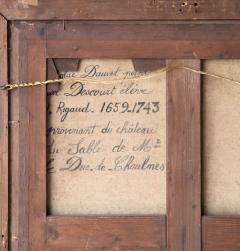 Dauvet
Descourt élève
Rigaud. 1659-1743
provenant du château
du Sablé de M
le Duc de Chaulnes